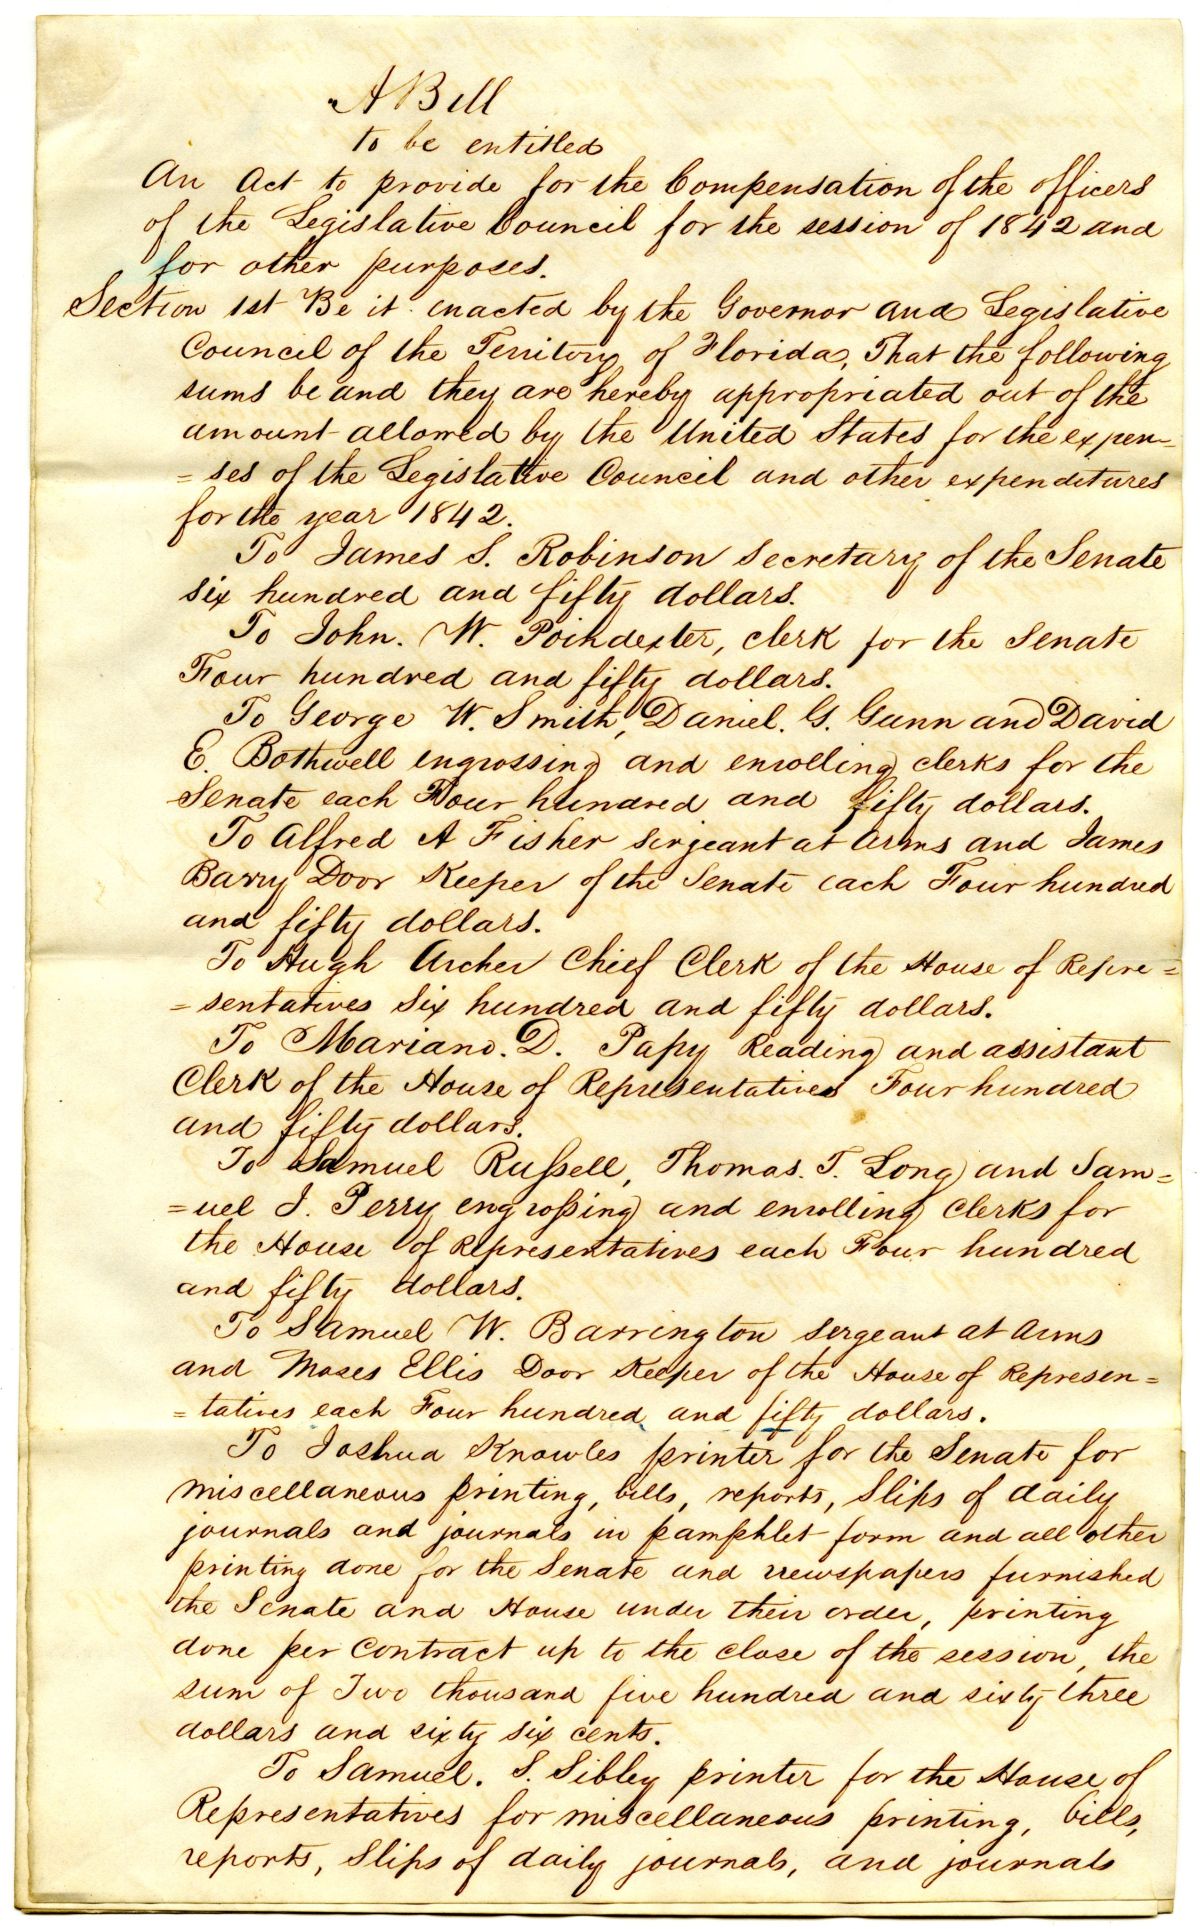 A Bill
to be entitled
An Act to provide for the Compensation of the officers
of the Legislative Council for the session of 1842 and
for other purposes.
Section 1st Be it enacted by the Governor and Legislative
Council of the Territory of Florida, That the following
sums be and they are hereby appropriated out of the
amount allowed by the United States for the expen-
=ses of the Legislative Council and other expenditures
for the year 1842.
To James S. Robinson Secretary of the Senate
six hundred and fifty dollars.
To John. W. Poindexter, clerk for the Senate
Four hundred and fifty dollars.
To George W. Smith, Daniel. G. Gunn and David
E. Bothwell engrossing and enrolling clerks for the
Senate each Four hundred and fifty dollars.
To Alfred A Fisher serjeant at Arms and James
Barry Door Keeper of the Senate each Four hundred
and fifty dollars.
To Hugh Archer Chief Clerk of the House of Repre=
=sentatives Six hundred and fifty dollars.
To Mariano. D. Papy Reading and assistant
Clerk of the House of Representatives Four hundred
and fifty dollars.
To Samuel Russell, Thomas. T. Long and Sam=
=uel J. Perry engrossing and enrolling Clerks for
the House of Representatives each Four hundred
and fifty dollars.
To Samuel W. Barrington sergeant at Arms
and Moses Ellis Door Keeper of the House of Represen=
=tatives each Four hundred and fifty dollars.
To Joshua Knowles printer for the Senate for
miscellaneous printing, bills, reports, Slips of daily
journals and journals in pamphlet form and all other
printing done for the Senate and newspapers furnished
the Senate and House under their order, printing
done per Contract up to the close of the session, the
sum of Two thousand five hundred and sixty three
dollars and sixty six cents.
To Samuel. S. Sibley printer for the House of
Representatives for miscellaneous printing, bills,
reports, Slips of daily journals, and journals